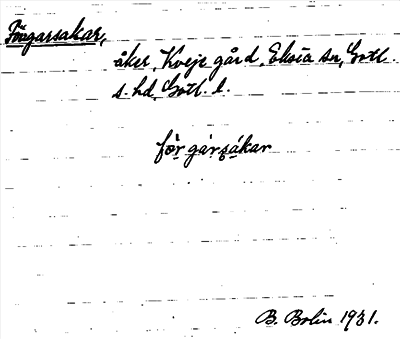 Förgarsakar,
åker, Kveje gård, Eksta sn, Gotl.
s. hd, Gotl. l.
før gàrsákar
B. Bolin 1931.